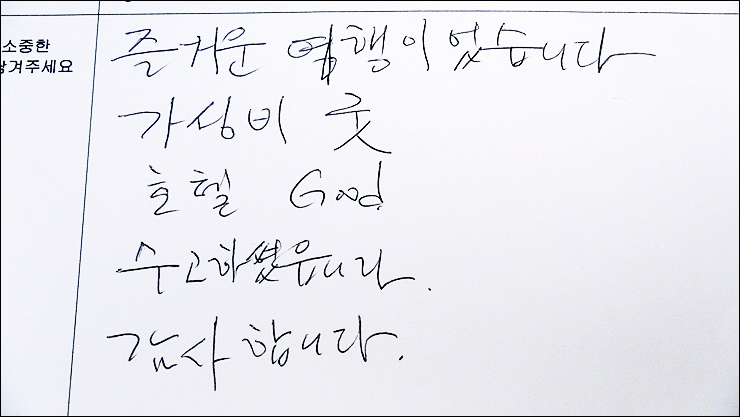 소중한
남겨주세요
즐거운 여행이었습니다
가성비 굿
호텔 Good
수고하셨읍니다.
감사합니다.